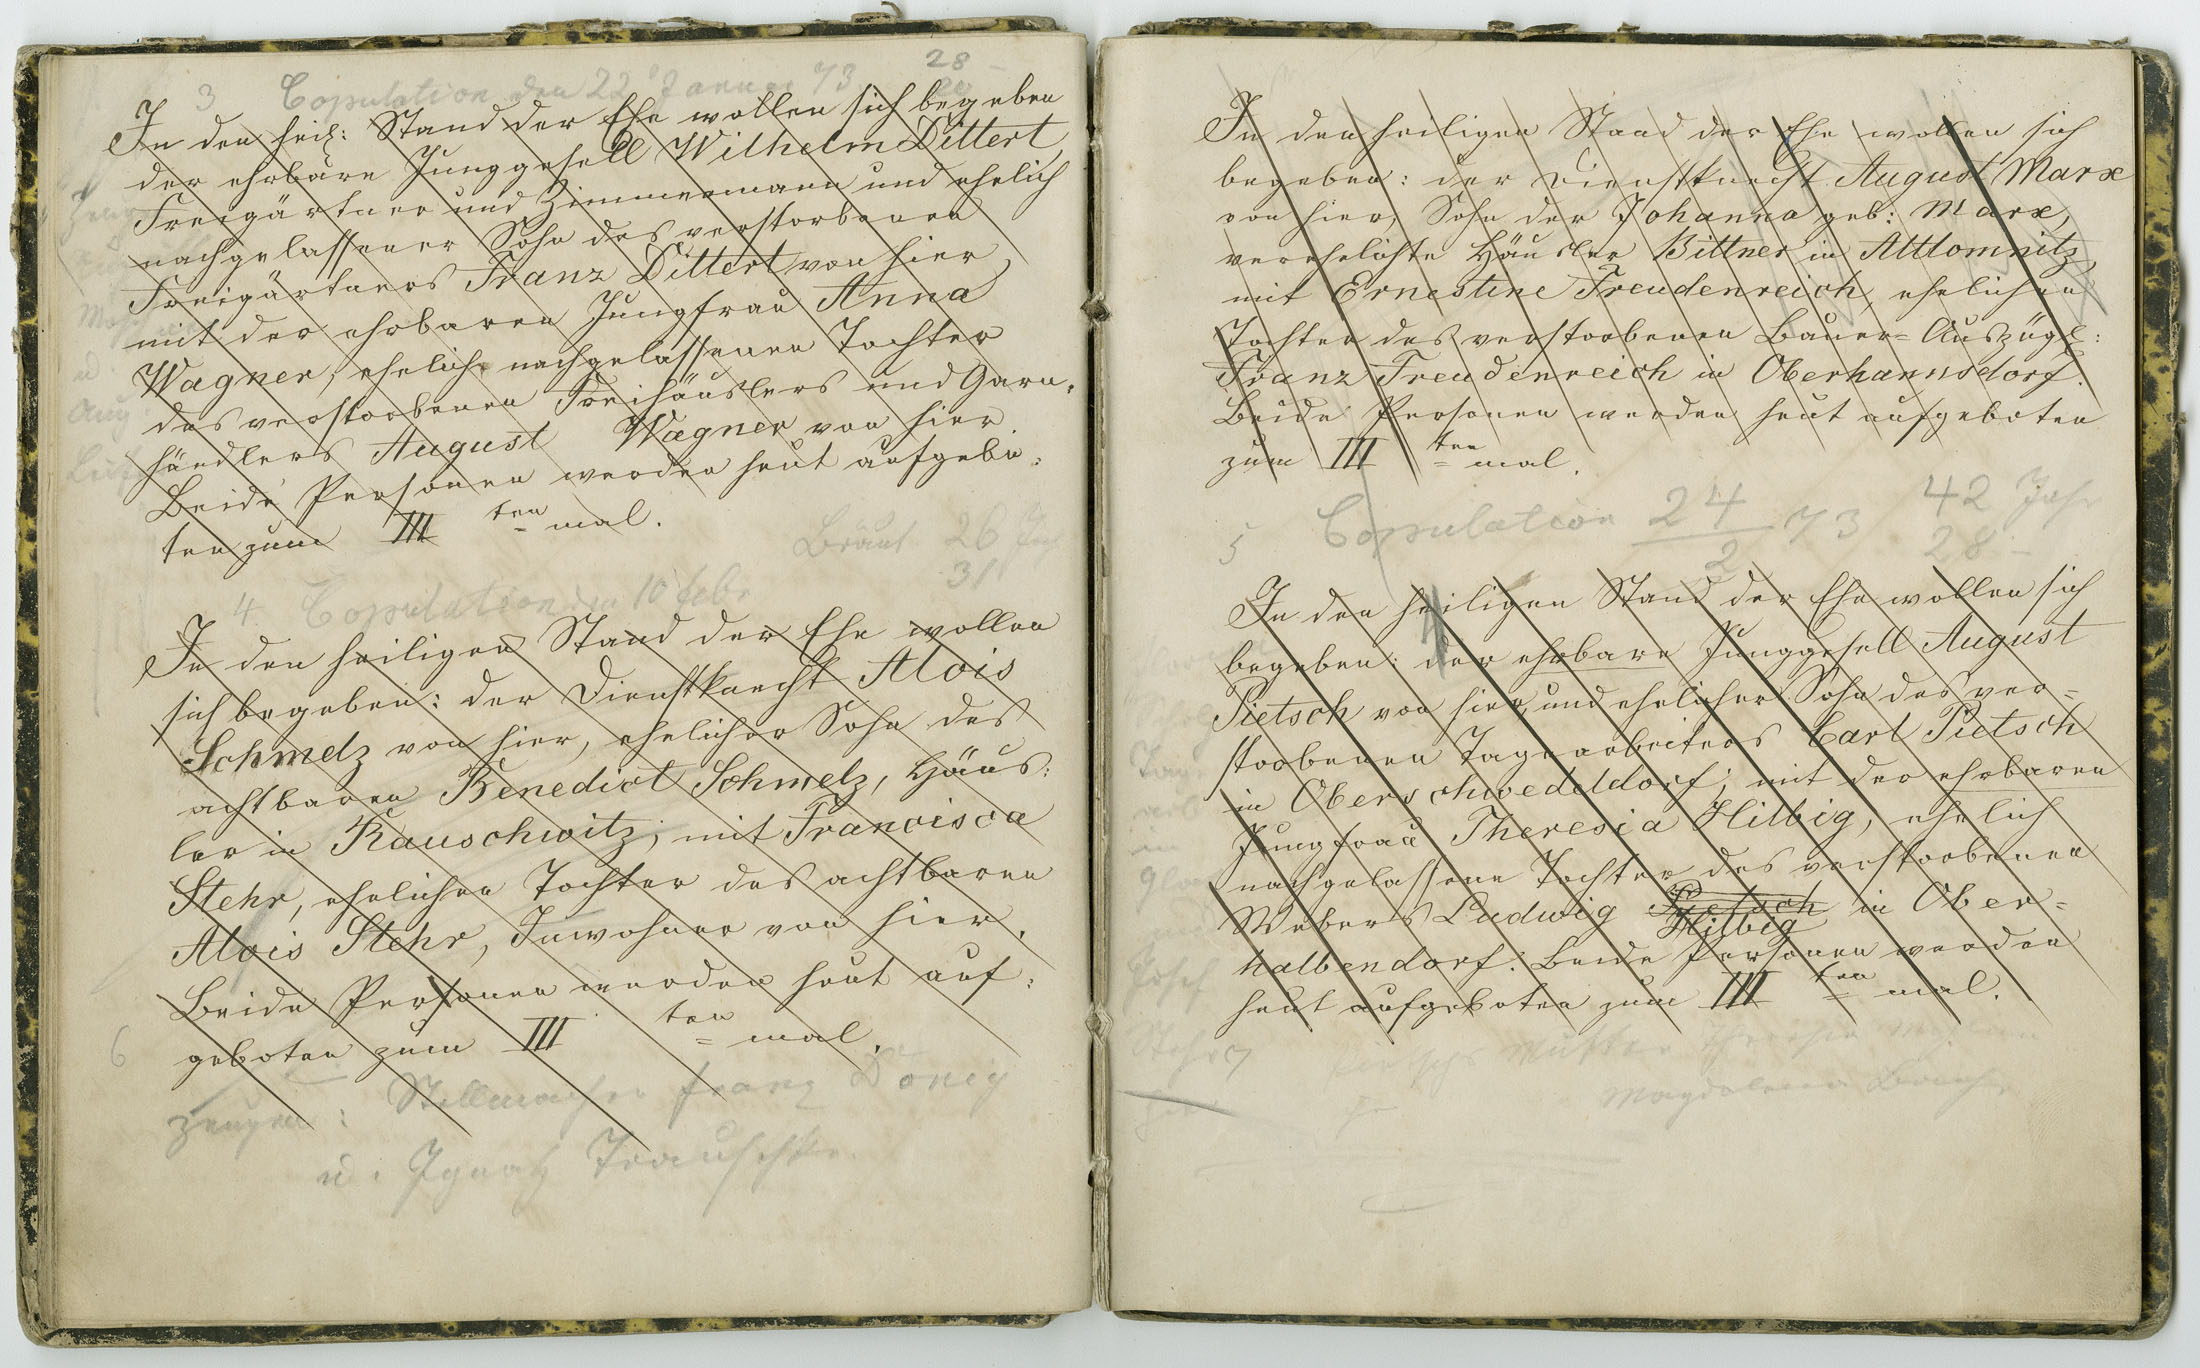 3 Copulation den 22 Januar 73 28
In den heil: Stand der Ehe wollen sich begeben
der ehrbare Junggesell Wilhelm Dittert,
Freigärtner und Zimmermann und ehelich
nachgelassener Sohn des verstorbenen
Freigärtners Franz Dittert von hier,
mit der ehrbaren Jungfrau Anna
Wagner, ehelich nachgelassenen Tochter
des verstorbenen Freihäuslers und Garn-
händlers August Wagner von hier.
Beide Personen werden heut aufgebo:
ten zum III ten mal.
Braut 26 Jah
31
4. Copulation den 10 Febr
In den heiligen Stand der Ehe wollen
sich begeben: der Dienstknecht Alois
Schmelz von hier, ehelicher Sohn des
achtbaren Benedict Schmelz, Häus:
ler in Rauschwitz; mit Francisca
Stehr, ehelichen Tochter des achtbaren
Alois Stehr, Inwohner von hier.
Beide Personen werden heut auf:
geboten zum III ten mal.
6
Zeugen: Stellmacher Franz Doney
u. Ignatz Trauschke.
In den heiligen Stand der Ehe wollen sich
begeben: der Dienstknecht August Marx
von hier, Sohn der Johanna geb: Marx,
verehelichte Häusler Bittner in Altlomnitz,
mit Ernestine Freudenreich, ehelichen
Tochter des verstorbenen Bauer-Auszügl:
Franz Freudenreich in Oberhannsdorf.
Beide Personen werden heut aufgeboten
zum III ten mal.
5 Copulation 24/2 73 42 Jahr
28 -
In den heiligen Stand der Ehe wollen sich
begeben: der ehrbare Junggesell August
Pietsch von hier, und ehelicher Sohn des ver-
storbenen Tagearbeiters Carl Pietsch
in Oberschwedeldorf; mit der ehrbaren
Jungfrau Theresia Hilbig, ehelich
nachgelassene Tochter des verstorbenen
Webers Ludwig Pietsch Hilbig in Ober-
halbendorf. Beide Personen werden
heut aufgeboten zum III ten mal.
Mutter
Magdalena